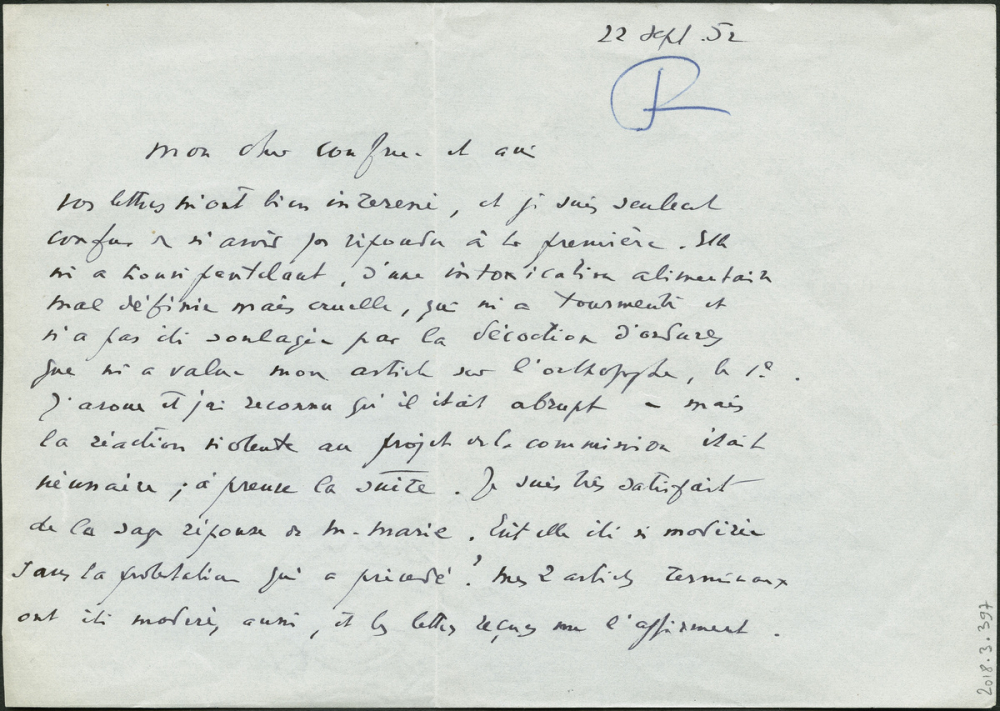 22 sept. 52
R
mon cher confrère et ami
vos lettres m'ont bien intéressé, et je suis seulement
confus de n'avoir pas répondu à la première. Elle
m'a trouvé pantelant, d'une intoxication alimentaire
mal définie mais cruelle, qui m'a tourmenté et
n'a pas été soulagée par la décoction d'ordures
que m'a value mon article sur l'orthographe, le 1º.
J'avoue et j'ai reconnu qu'il était abrupt – mais
la réaction violente au projet de la commission était
nécessaire ; à preuve la suite. Je suis très satisfait
de la sage réponse de M. Marie. Eût-elle été si modérée
sans la protestation qui a précédé ? Mes 2 articles terminaux
ont été modérés aussi, et les lettres reçues me l'affirment.
2018.3.397